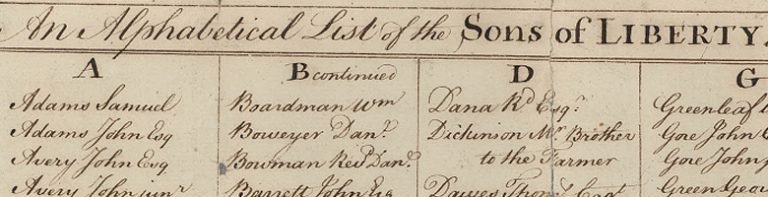 An Alphabetical List of the Sons of LIBERTY.
A
Adams Samuel
Adams John Esq
Avery John Esq
Avery John junr
B continued
Boardman Wm
Boweyer Danl.
Bowman Revd Danl.
Barrett John Esq
D
Dana Rd Esqr.
Dickinson Mr. Brother
to the Farmer
Dawes Thoms Capt
G
Greenleaf
Gore John
Gore John
Green